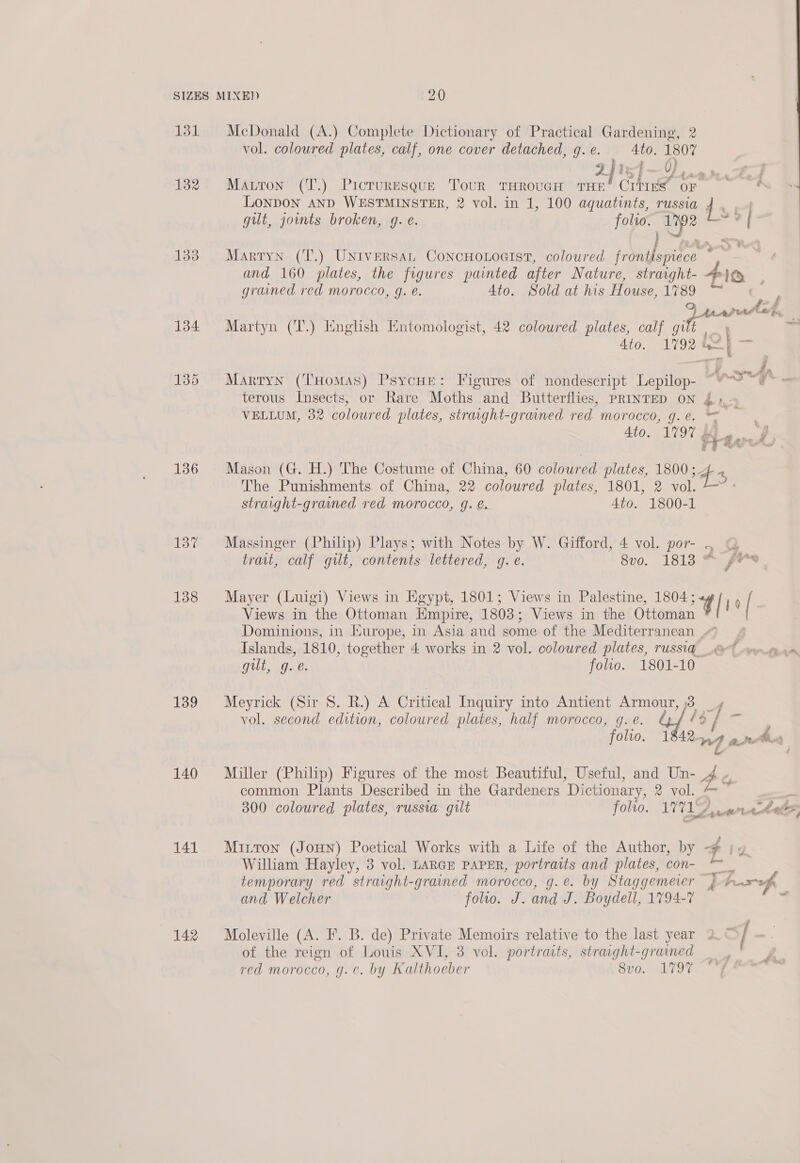 SIZES MIXED 20
131 McDonald (A.) Complete Dictionary of Practical Gardening, 2
vol. coloured plates, calf, one cover detached, g. e. 4to. 1807
132 MALTON (T.) PICTURESQUE TOUR THROUGH THE CITIES OF
LONDON AND WESTMINSTER, 2 vol. in 1, 100 aquatints, russia
gilt, joints broken, g. e. folio. 1792
133 MARTYN (T.) UNIVERSAL CONCHOLOGIST, coloured frontispiece
and 160 plates, the figures painted after Nature, straight-
grained red morocco, g. e. 4to. Sold at his House, 1789
134 Martyn (T.) English Entomologist, 42 coloured plates, calf gilt
4to. 1792
135 MARTYN (THOMAS) PSYCHE: Figures of nondescript Lepilop-
terous Insects, or Rare Moths and Butterflies, PRINTED ON
VELLUM, 32 coloured plates, straight-grained red morocco, g. e.
4to. 1797
136 Mason (G. H.) The Costume of China, 60 coloured plates, 1800;
The Punishments of China, 22 coloured plates, 1801, 2 vol.
straight-grained red morocco, g. e. 4to. 1800-1
137 Massinger (Philip) Plays; with Notes by W. Gifford, 4 vol. por-
trait, calf gilt, contents lettered, g. e. 8vo. 1813
138 Mayer (Luigi) Views in Egypt, 1801; Views in Palestine, 1804;
Views in the Ottoman Empire, 1803; Views in the Ottoman
Dominions, in Europe, in Asia and some of the Mediterranean
Islands, 1810, together 4 works in 2 vol. coloured plates, russia
gilt, g. e. folio. 1801-10
139 Meyrick (Sir S. R.) A Critical Inquiry into Antient Armour, 3
vol. second edition, coloured plates, half morocco, g. e.
folio. 1842
140 Miller (Philip) Figures of the most Beautiful, Useful, and Un-
common Plants Described in the Gardeners Dictionary, 2 vol.
300 coloured plates, russia gilt folio. 1771
141 MILTON (JOHN) Poetical Works with a Life of the Author, by
William Hayley, 3 vol. LARGE PAPER, portraits and plates, con-
temporary red straight-grained morocco, g. e. by Staggemeier
and Welcher folio. J. and J. Boydell, 1794-7
142 Moleville (A. F. B. de) Private Memoirs relative to the last year
of the reign of Louis XVI, 3 vol. portraits, straight-grained
red morocco, g. e. by Kalthoeber 8vo. 1797